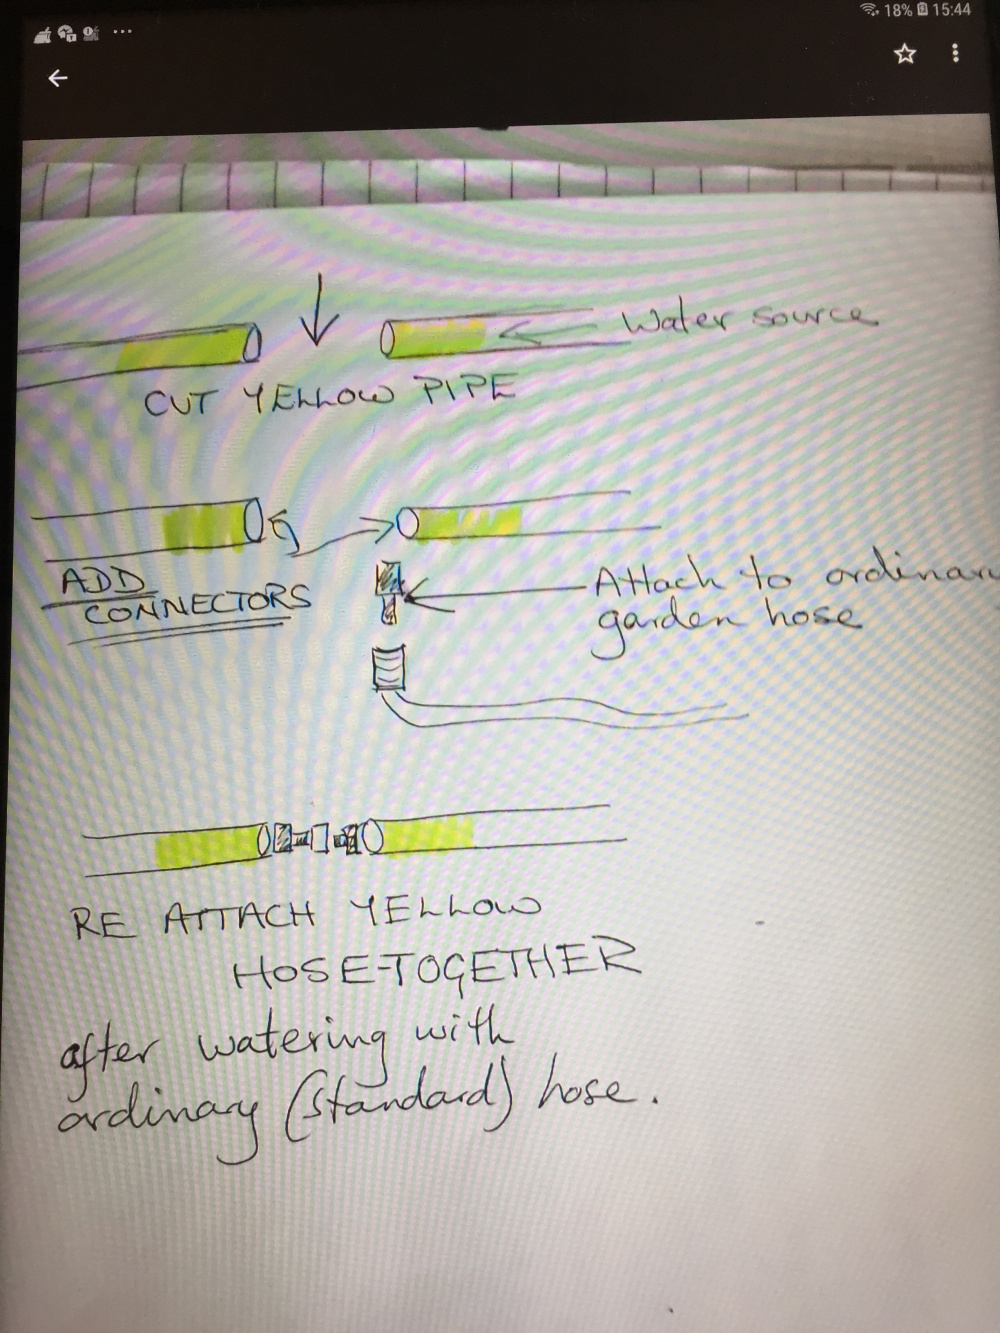 18% 15:44
Water source
CUT YELLOW PIPE
ADD
CONNECTORS
Attach to ordinary
garden hose
RE ATTACH YELLOW
HOSE-TOGETHER
after watering with
ordinary (standard) hose.